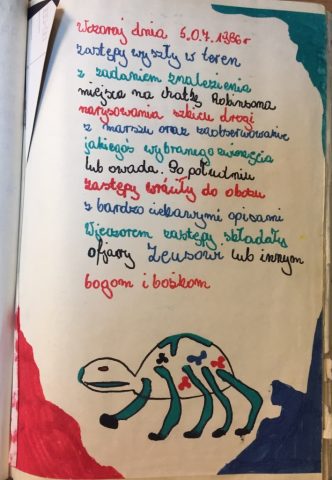 Wczoraj dnia 5.0.7.1986 r
zastępy wyszły w teren
z zadaniem znalezienia
miejsca na chatkę Robinsona
narysowania szkicu drogi
z marszu oraz zaobserwowanie
jakiegoś wybranego zwierzęcia
lub owada. Po południu
zastępy wróciły do obozu
z bardzo ciekawymi opisami
Wieczorem zastępy składały
ofiary Zeusowi lub innym
bogom i boskom